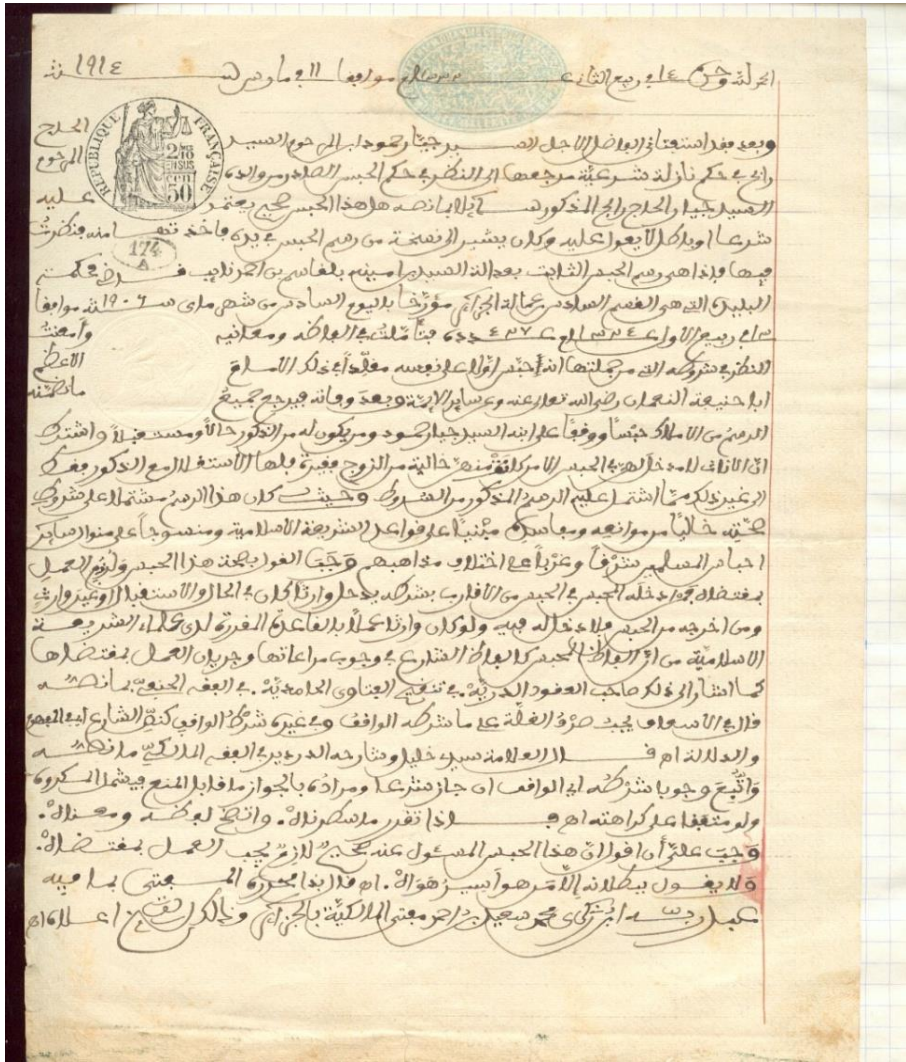 الحمد لله وحده في ١٤ ربيع الثاني عام ١٣٣٢ موافقا ١١ في مارس سنة ١٩١٤
REPUBLIQUE FRANÇAISE
2/10 EN SUS
50 cen
174
A
وبعد فقد استفتاني الفاضل الاجل السيد جيار حمود ابن المرحوم السيد الحاج
رابح في حكم نازلة شرعية مرجعها الى النظر في حكم الحبس الصادر من والده المرحوم
السيد جيار الحاج رابح المذكور سائلا بما نصه هل هذا الحبس صحيح يعتمد عليه
شرعا او باطل لا يعول عليه وكان يشير الى نسخة من رسم الحبس في يده فاخذتها منه فنظرت
فيها فاذا هي رسم الحبس الثابت بعدالة السيد بلقاسم بن احمد نايب قاضي محكمة
البليدة التي هي القسم السادس من عمالة الجزائر مؤرخا باليوم السادس من شهر ماي سنة ١٩٠٦ موافقا
ربيع الاول عام ١٣٢٤ عدد ٤٣٧ فتأملت في الفاظه ومعانيه وأمعنت
النظر في شروطه التي من جملتها انه احبس اولا على نفسه مقلدا في ذلك الامام الاعظم
ابا حنيفة النعمان رضي الله تعالى عنه وعن ساير الايمة وبعد وفاته فيرجع جميع ما تضمنه
الرسم من الاملاك حبسا ووقفا على ابنه السيد جيار حمود ومن يكون له من الذكور حالا ومستقبلا واشترط
ان الاناث لا مدخل لهن في الحبس الا من كانت منهن خالية من الزوج فقيرة فلها الاستغلال مع الذكور فقط
الى غير ذلك مما اشتمل عليه الرسم المذكور من الشروط وحيث كان هذا الرسم مشتملا على شروط
صحته خاليا من موانعه ومفاسده مبنيا على قواعد الشريعة الاسلامية ومنسوجا على منوال ساير
احباس المسلمين شرقا وغربا على اختلاف مذاهبهم وجب القول بصحة هذا الحبس ولزوم العمل
بمقتضاه فمن ادخله المحبس في الحبس من الاقارب بشرطه يدخل وارثا كان في الحال والاستقبال او غير وارث
ومن اخرجه من الحبس فلا دخل له فيه ولو كان وارثا عملا بالقاعدة المقررة لدى علماء الشريعة
الاسلامية من ان الفاظ المحبس كالفاظ الشارع في وجوب مراعاتها وجريان العمل بمقتضاها
كما اشار الى ذلك صاحب العقود الدرية في تنقيح الفتاوى الحامدية في الفقه الحنفي بما نصه
قال في الاسعاف يجب صرف الغلة على ما شرطه الواقف وفي غيره شرط الواقف كنص الشارع اي في الفهم
والدلالة اه قال العلامة سيدي خليل وشارحه الدردير في الفقه المالكي ما نصه
واتبع وجوبا شرطه اي الواقف ان جاز شرعا ومراده بالجواز ما قابل المنع فيشمل المكروه
ولو متفقا على كراهته اه فاذا تقرر ما سطرناه واتضح لفظه ومعناه
وجب علي أن اقول ان هذا الحبس المسئول عنه صحيح لازم يجب العمل بمقتضاه
ولا يقول ببطلانه إلا من هو أسير هواه اه قال بذا محرره المفتي بما فيه
محمد السعيد بن احمد مفتي المالكية بالجزائر